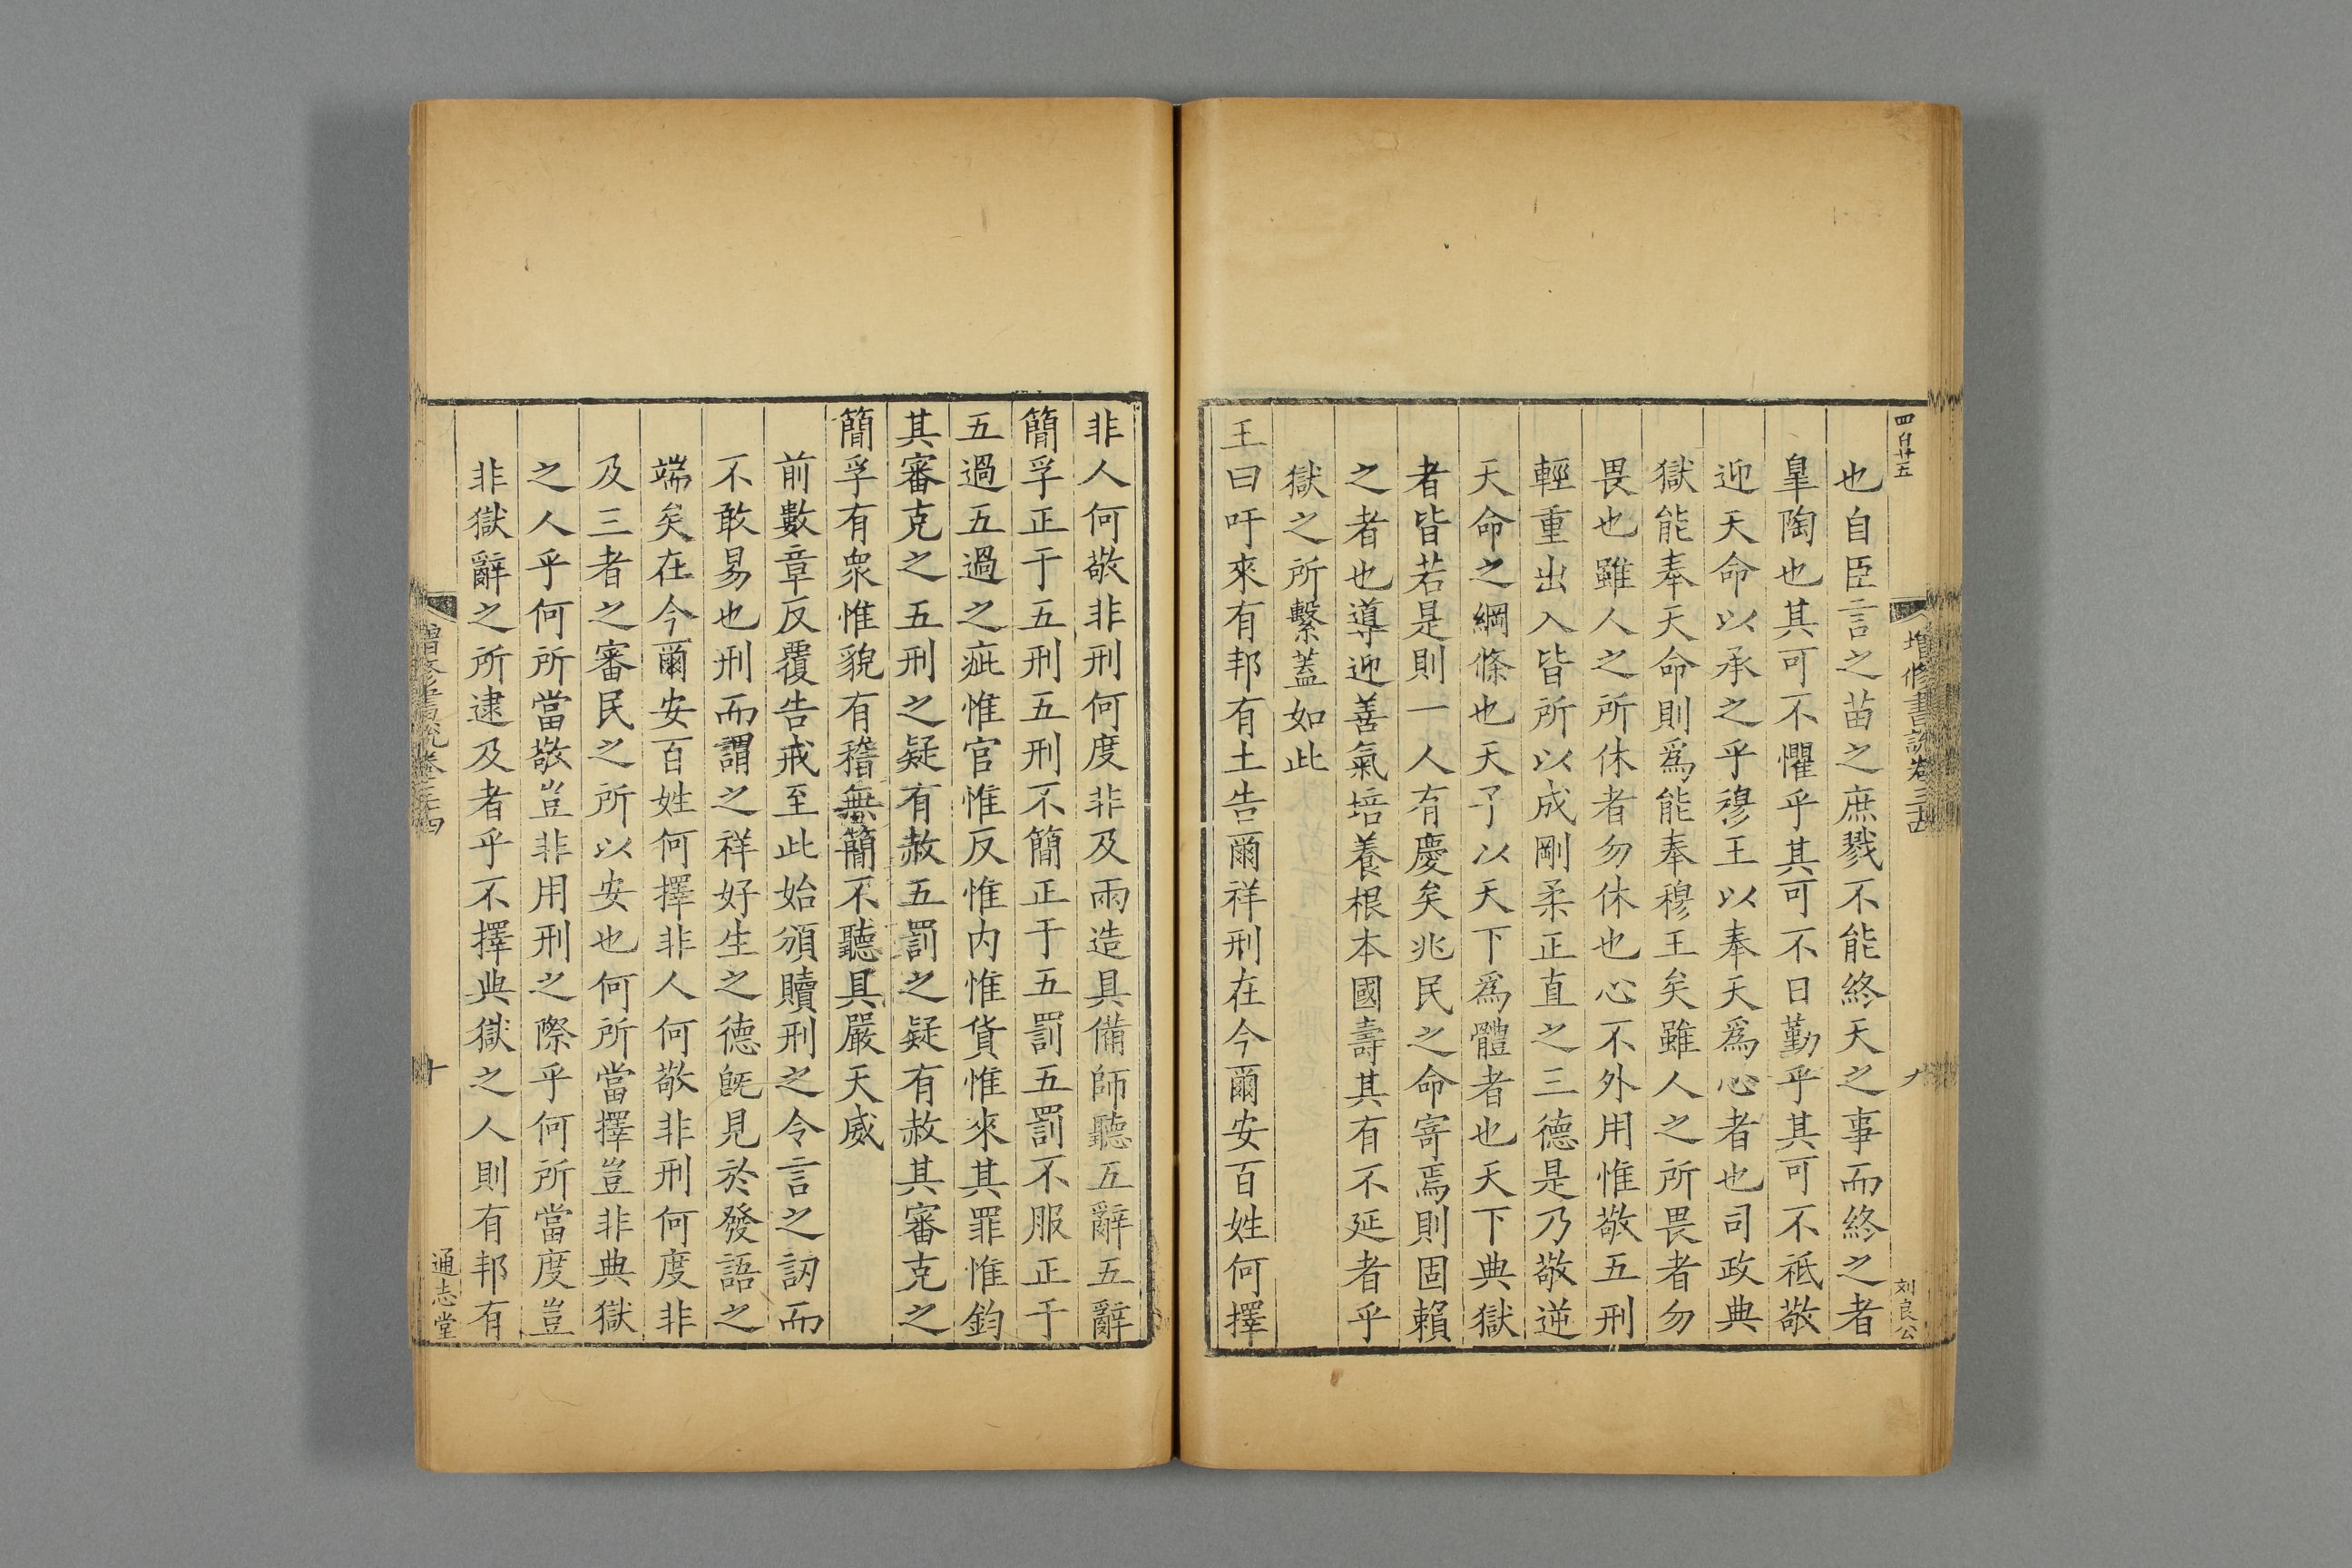 四百廿五
增修書說卷三十四
九
刘良公
也自臣言之苗之庶戮不能終天之事而終之者
臯陶也其可不懼乎其可不日勤乎其可不祗敬
迎天命以承之乎穆王以奉天爲心者也司政典
獄能奉天命則爲能奉穆王矣雖人之所畏者勿
畏也雖人之所休者勿休也心不外用惟敬五刑
輕重出入皆所以成剛柔正直之三德是乃敬逆
天命之綱條也天子以天下爲體者也天下典獄
者皆若是則一人有慶矣兆民之命寄焉則固賴
之者也導迎善氣培養根本國壽其有不延者乎
獄之所繫蓋如此
王曰吁來有邦有土告爾祥刑在今爾安百姓何擇
非人何敬非刑何度非及兩造具備師聽五辭五辭
簡孚正于五刑五刑不簡正于五罰五罰不服正于
五過五過之疵惟官惟反惟内惟貨惟來其罪惟鈞
其審克之五刑之疑有赦五罰之疑有赦其審克之
簡孚有衆惟貌有稽無簡不聽具嚴天威
前數章反覆告戒至此始頒贖刑之令言之訒而
不敢易也刑而謂之祥好生之德旣見於發語之
端矣在今爾安百姓何擇非人何敬非刑何度非
及三者之審民之所以安也何所當擇豈非典獄
之人乎何所當敬豈非用刑之際乎何所當度豈
非獄辭之所逮及者乎不擇典獄之人則有邦有
增修書說卷三十四
十
通志堂